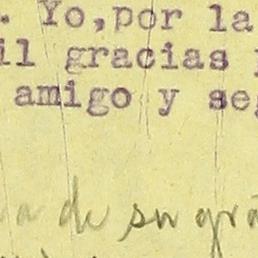 . Yo,por la
il gracias
amigo y seg
a de su gra